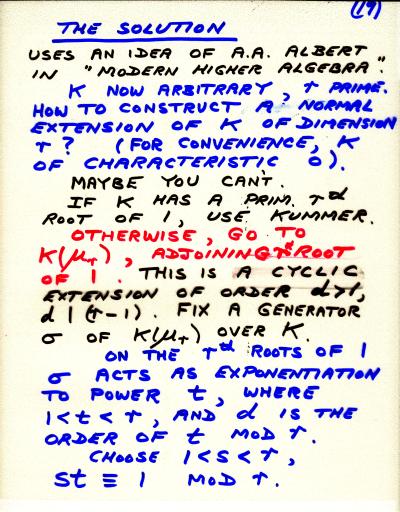 (19)
THE SOLUTION
USES AN IDEA OF A.A. ALBERT
IN "MODERN HIGHER ALGEBRA".
K NOW ARBITRARY, r PRIME.
HOW TO CONSTRUCT A NORMAL
EXTENSION OF K OF DIMENSION
r? (FOR CONVENIENCE, K
OF CHARACTERISTIC 0).
MAYBE YOU CAN'T.
IF K HAS A PRIM. rth
ROOT OF 1, USE KUMMER.
OTHERWISE, GO TO
K(μr), ADJOINING rth ROOT
OF 1. THIS IS A CYCLIC
EXTENSION OF ORDER d>1,
d | (r-1). FIX A GENERATOR
σ OF K(μr) OVER K.
ON THE rth ROOTS OF 1
σ ACTS AS EXPONENTIATION
TO POWER t, WHERE
1<t<r, AND d IS THE
ORDER OF t MOD r.
CHOOSE 1<s<r,
st ≡ 1 MOD r.